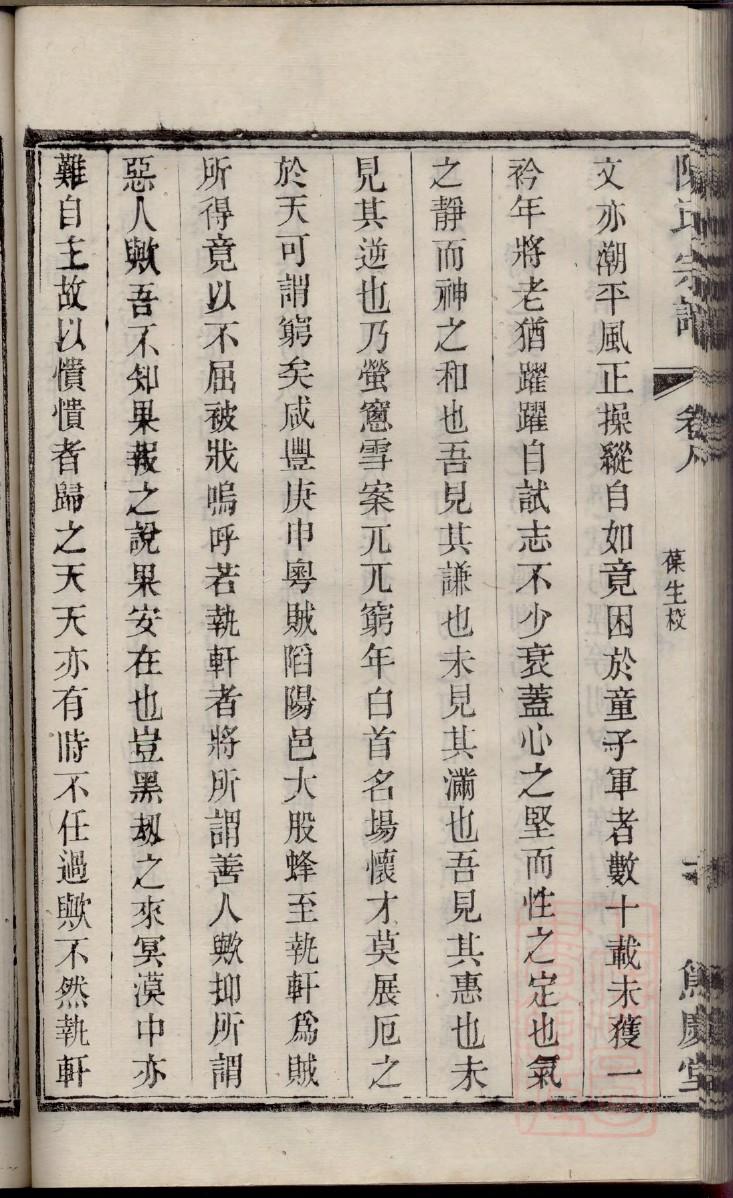 宗譜 卷八
葆生校
堂
文亦潮平風正操縱自如竟困於童子軍者數十載未獲一
衿年將老猶躍躍自試志不少衰蓋心之堅而性之定也氣
之靜而神之和也吾見其謙也未見其滿也吾見其惠也未
見其逆也乃螢窻雪案兀兀窮年白首名場懷才莫展厄之
於天可謂窮矣咸豐庚申粵賊陷陽邑大股蜂至執軒爲賊
所得竟以不屈被戕嗚呼若執軒者將所謂善人歟抑所謂
惡人歟吾不知果報之說果安在也豈黑刼之來冥漠中亦
難自主故以憒憒者歸之天天亦有時不任過歟不然執軒